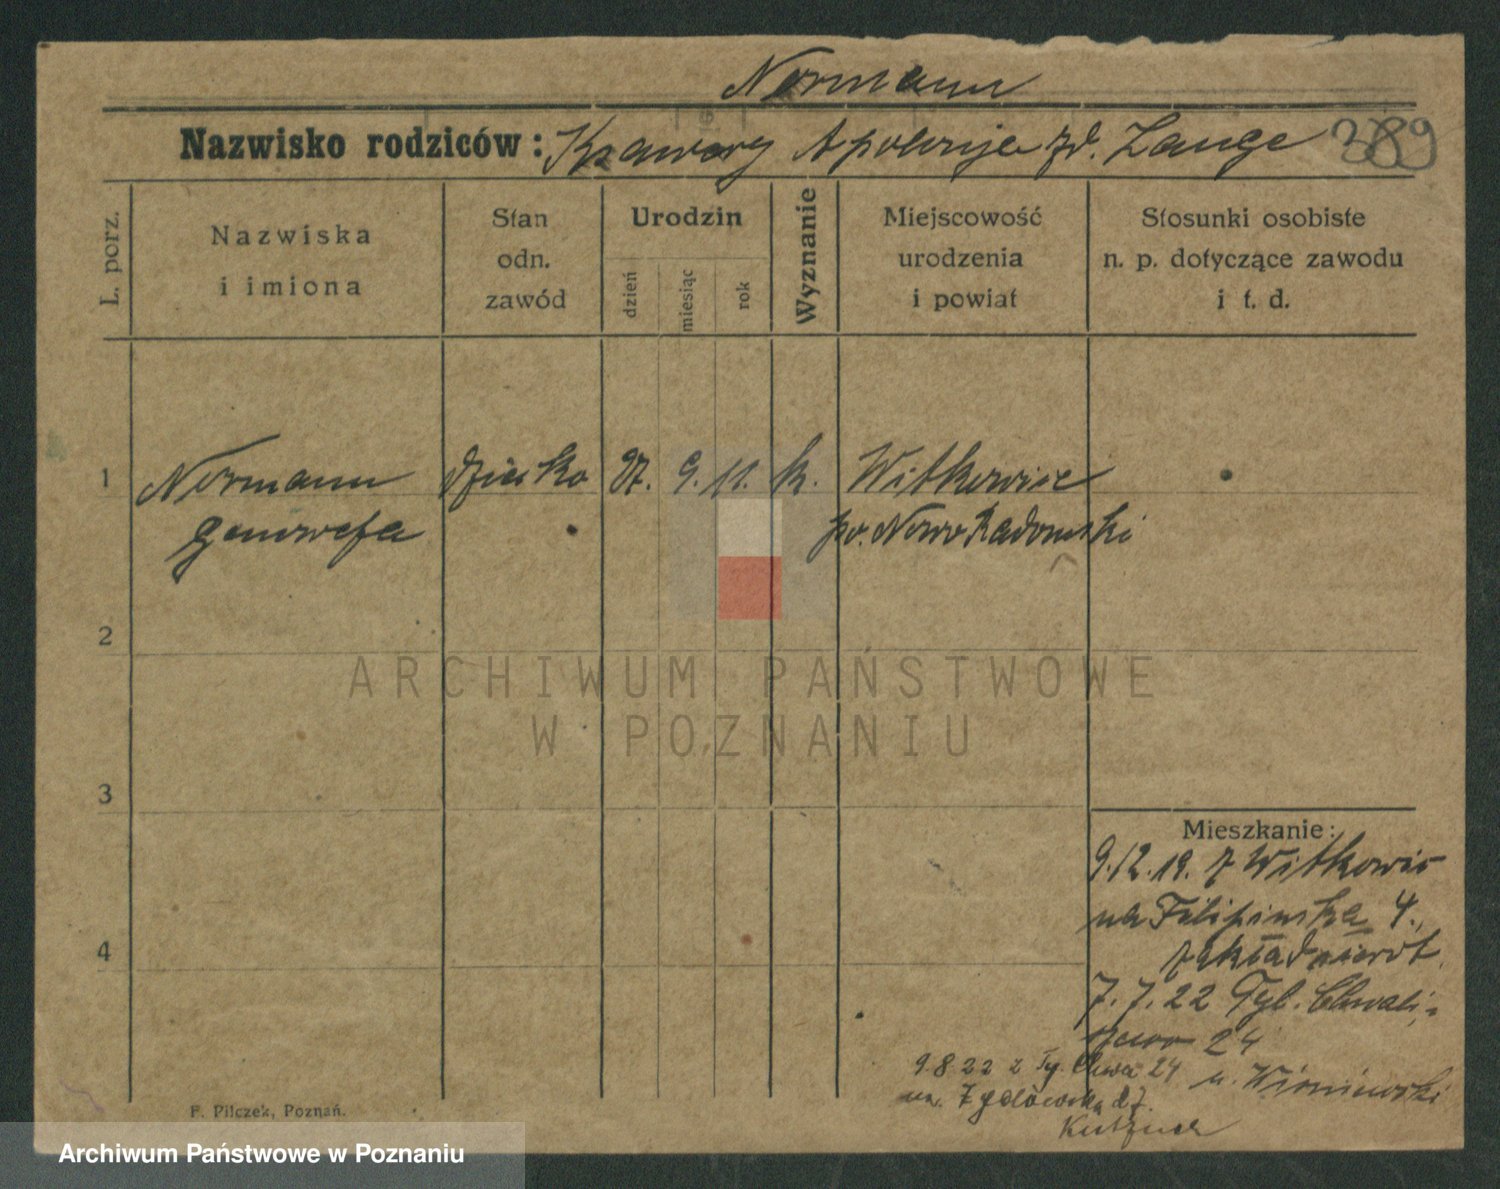 Normann
Nazwisko rodziców: Krawery Apolonja zd. Lange 389
L. porz.
Nazwiska
i imiona
Stan
odn.
zawód
Urodzin
dzień
miesiąc
rok
Wyznanie
Miejscowość
urodzenia
i powiat
Stosunki osobiste
n. p. dotyczące zawodu
i t. d.
1 Normann dziecko 27. 9. 11. k. Witkowice
Genowefa po. Nowo Radomski
2
ARCHIWUM PAŃSTWOWE
W POZNANIU
3
Mieszkanie:
9.12.19. z Witkowic
na Filipinska 4.,
zakład sierot.
4
7.7.22 Tyl. Chwali-
szewo 24
u. Wiśniewski
9.8.22 z Ty. Chwa 24
na. Zydowska 27.
F. Pilczek, Poznań.
Archiwum Państwowe w Poznaniu